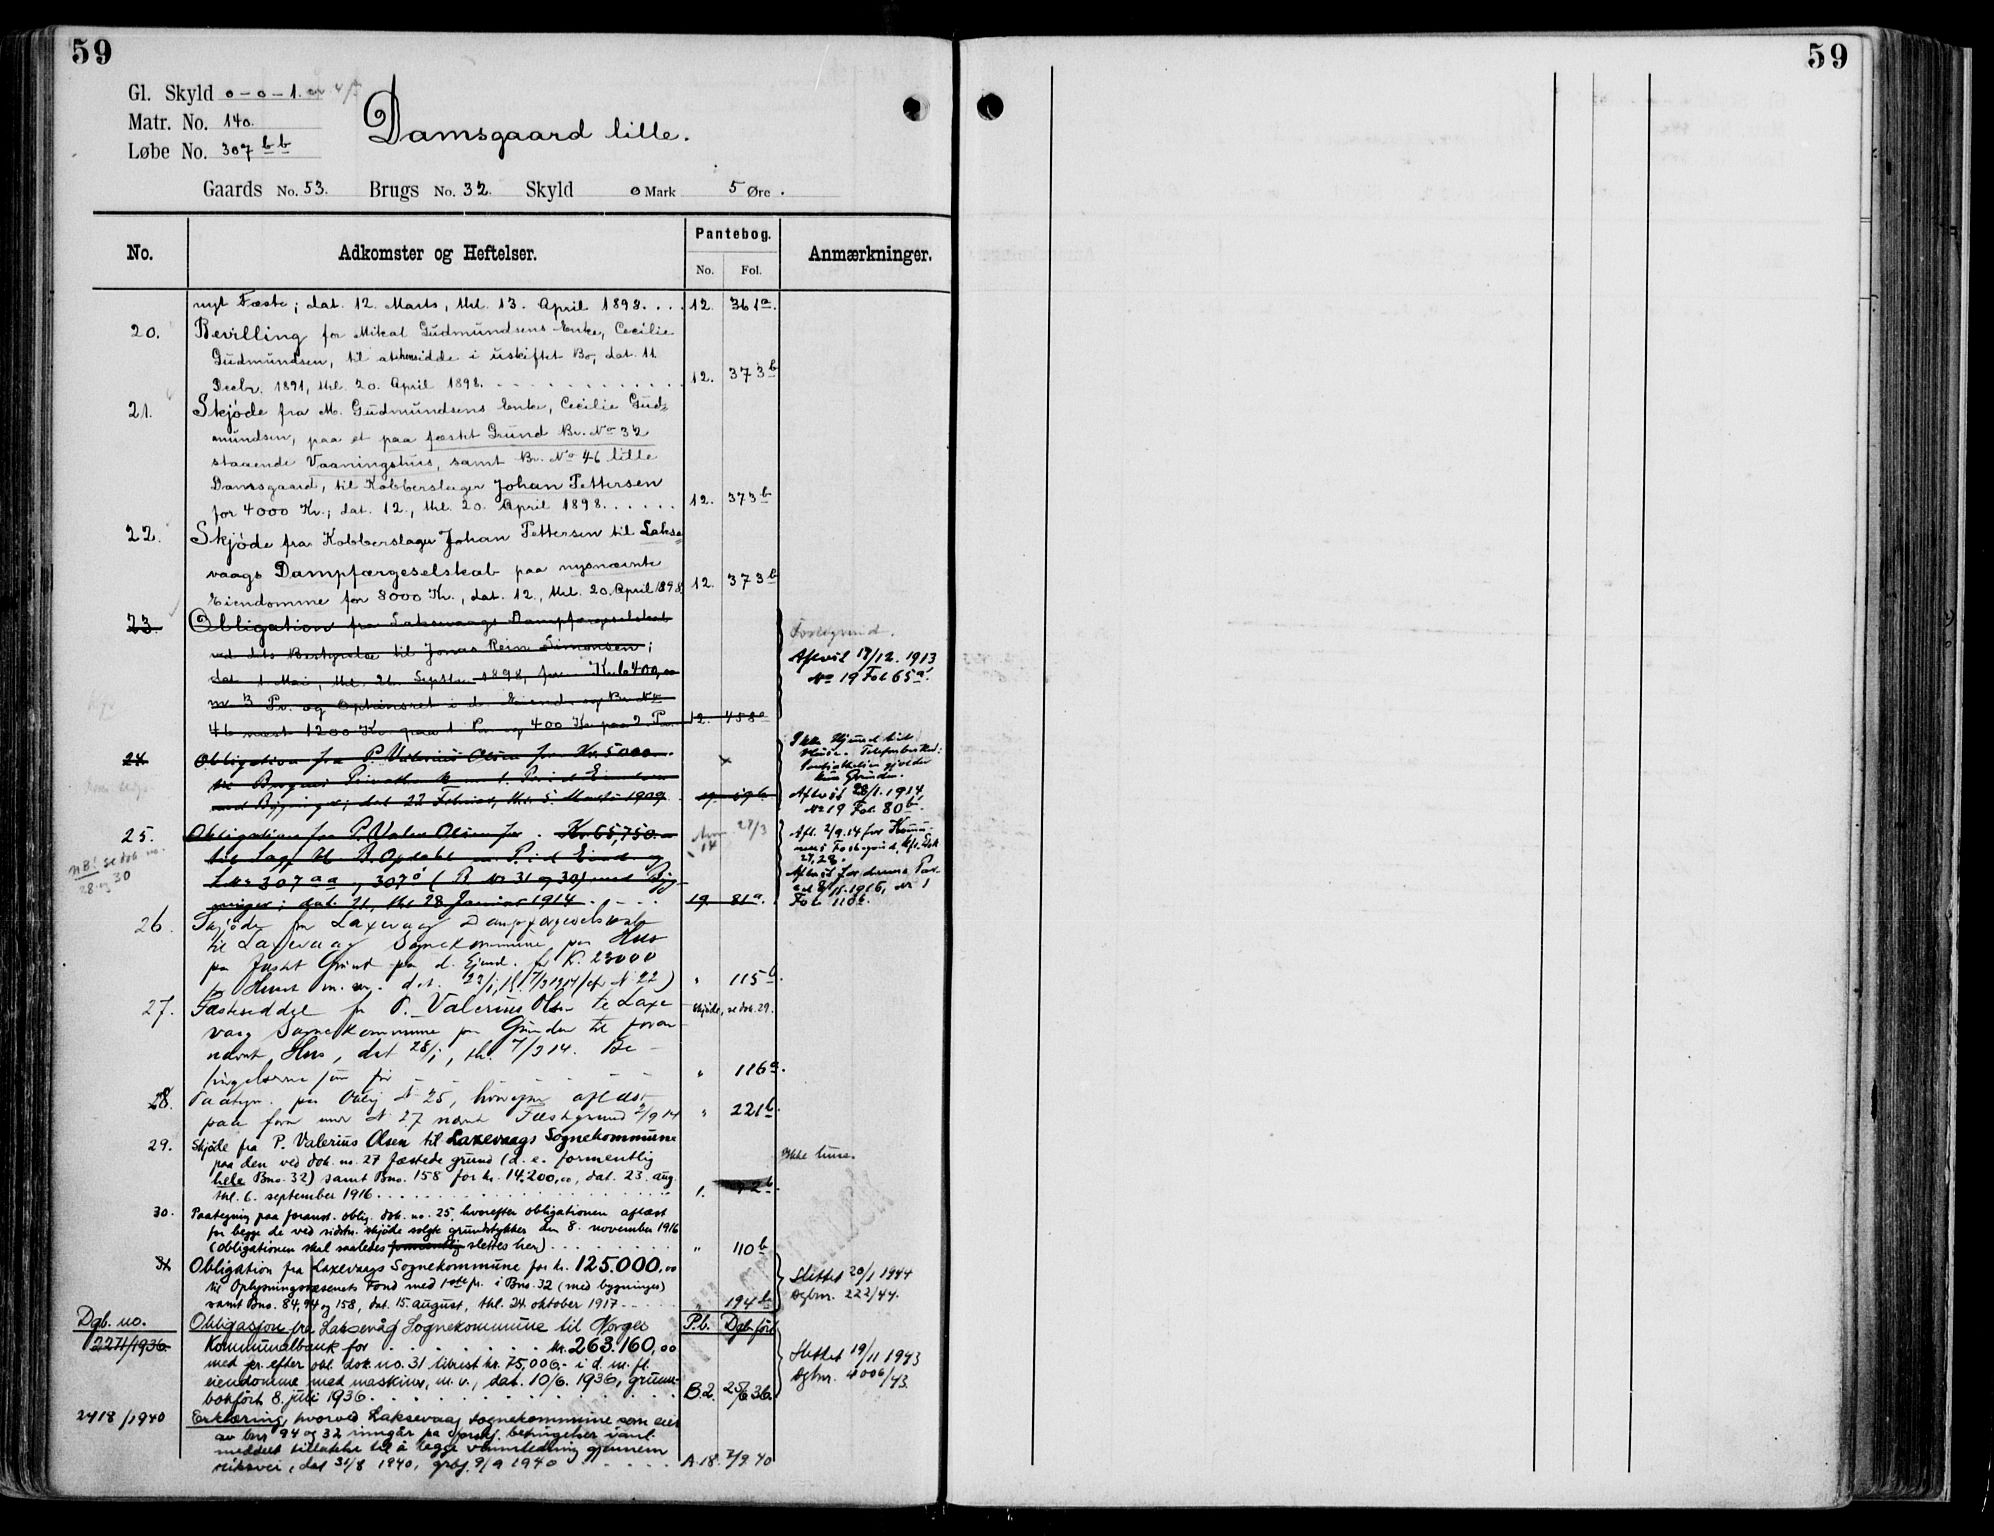 59
59
Gl. Skyld 0 - 0 - 1.
Matr. No. 140.
Løbe No. 307 bb
Damsgaard lille.
Gaards No. 53. Brugs No. 32. Skyld 0 Mark 5 Øre.
No. Adkomster og Heftelser. Pantebog. Anmærkninger.
No. Fol.
nyt Fæste; dat. 12. Marts, thl. 13. April 1898. . . . 12. 361a.
20. Bevilling for Mikal Gudmundsens Enke, Cecilie
Gudmundsen, til at hensidde i uskiftet Bo, dat. 11.
Decbr. 1891, thl. 20. April 1898. 12. 373b
21. Skjøde fra M. Gudmundsens Enke, Cecilie Gud-
mundsen, paa et paa fæstet Grund Br. No 32
staaende Vaaningshus, samt Br. No 46 lille
Damsgaard, til Kobberslager Johan Pettersen
for 4000 Kr.; dat. 12., thl. 20. April 1898. . . . . . 12. 373b
22. Skjøde fra Kobberslager Johan Pettersen til Lakse-
vaags Dampfærgeselskab paa nysnævnte
Eiendomme for 8000 Kr., dat. 12., thl. 20. April 1898. 12. 373b
23. Obligation fra Laksevaags Dampfærgeselskab
ved dets Bestyrelse til Jonas Rein Simonsen;
dat. 1. Mai, thl. 21. Septbr. 1898, for Kr. 6400,00
m. 3 Pr. og Opkinsret i d. Eiend. og Br. No
46 næst 1200 Kr. paa 1 Pr. og 400 Kr. paa 2. Pr. 12. 458a
Aflæst 18/12. 1913
No 19 Fol. 65a.
24. Obligation fra P. Valerius Olsen for Kr. 5000.
til Bergens Privatbank m. 1. Pr. i d. Eiendom
med Bygninger; dat. 22 Februar, thl. 5. Marts 1909.
Aflæst 28/1. 1914
No 19 Fol. 80b.
25. Obligation fra P. Valer. Olsen for Kr. 65,750.
til Sagf. B. Opdahl m. Pr. i d. Eiend. og
L.Nr 307 aa og 307 ó (B. Nr 31 og 30) med Byg-
ninger; dat. 21, thl. 28 Januar 1914. 19. 81a.
NB! se dok no.
28 og 30
Fol. 110b.
26. Skjøde fra Laxevaag Dampfærgeselskab
til Laxevaag Sognekommune paa Hus
paa fæstet Grund paa d. Ejend. for K. 23000
" 115b.
27. Fæsteseddel fra P. Valerius Olsen til Laxe- Skjøde, se dok. 29.
vaag Sognekommune paa Grunden til foran-
nævnt Hus, dat 28/1, thl. 7/3 14. Be-
tingelserne som før " 116a.
28. Paategn. paa Oblig No 25, hvorefter aflæst
paa foran under No 27 nævnt Fæstegrund 2/9 14 " 221b.
29. Skjøde fra P. Valerius Olsen til Laxevaags Sognekommune
paa den ved dok. no. 27 fæstede grund (d. e. formentlig
hele Bno. 32) samt Bno. 158 for kr. 14,200,00, dat. 23. aug.
thl. 6. september 1916. 1. 92b.
30. Paategning paa foranst. oblig. dok. no. 25, hvorefter obligationen aflæst
for begge de ved sidstn. skjøde solgte grundstykker den 8. november 1916
(Obligationen skal saaledes formentlig slettes her) " 110b
31 Obligation fra Laxevaags Sognekommune for kr. 125.000,00
til Oplysningsvæsenets Fond med 1ste pr. i Bno. 32 (med bygninger)
samt Bno. 84, 94 og 158, dat. 15. august, thl. 24. oktober 1917 " 194b
Slettet 20/1 1944
Dgbnr. 222/44.
Dgb. no. Obligasjon fra Laksevåg Sognekommune til Norges P.b. Dgb.ført
2271/1936. Kommunalbank for kr. 263.160,00
med pr. efter obl. dok. no. 31 tilrest kr. 75,000,- i d. m. fl.
eiendomme med maskiner, m. v., dat. 10/6. 1936, grunn-
bokført 8. juli 1936. B.2. 25/6 36.
Slettet 19/11 1943
Dgbnr. 4006/43.
2418/1940 Erklæring, hvorved Laksevaag sognekommune som eier
av bnr 94 og 32 inngår på forskj. betingelser i anl.
meddelt tillatelse til å legge vannledning gjennem
riksvei, dat 31/8 1940, grbf. 9/9 1940 A.18. 7/9 40